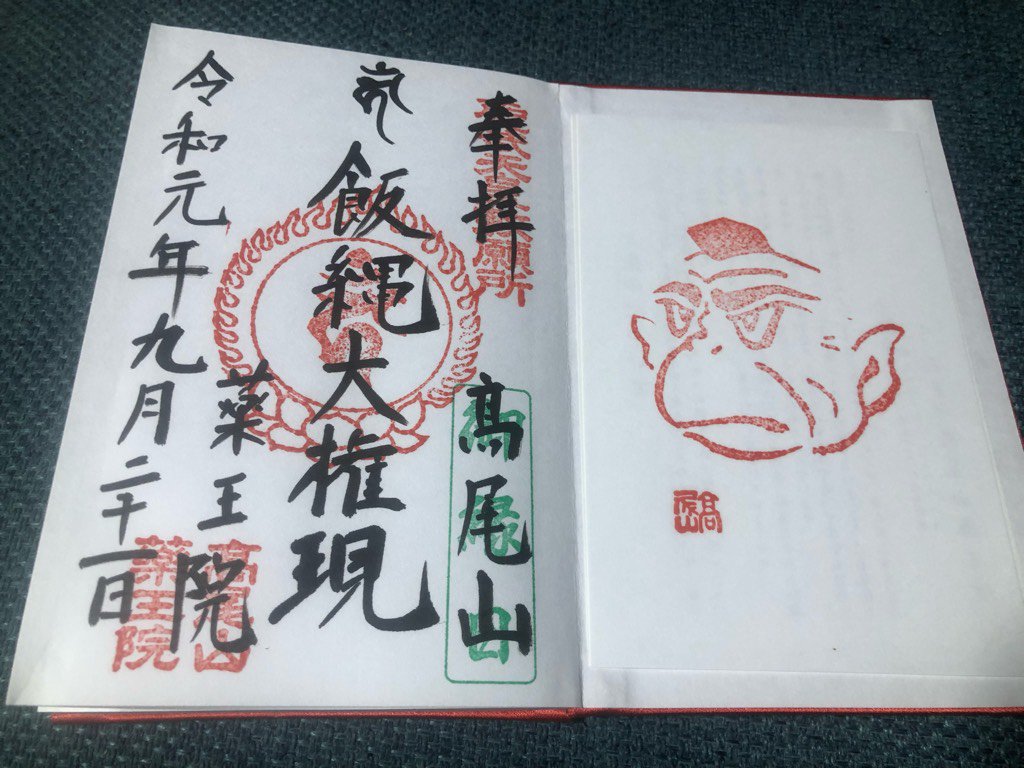 奉拝
髙尾山
御縁日
飯縄大権現
薬王院
高尾山
薬王院
令和元年九月二十一日